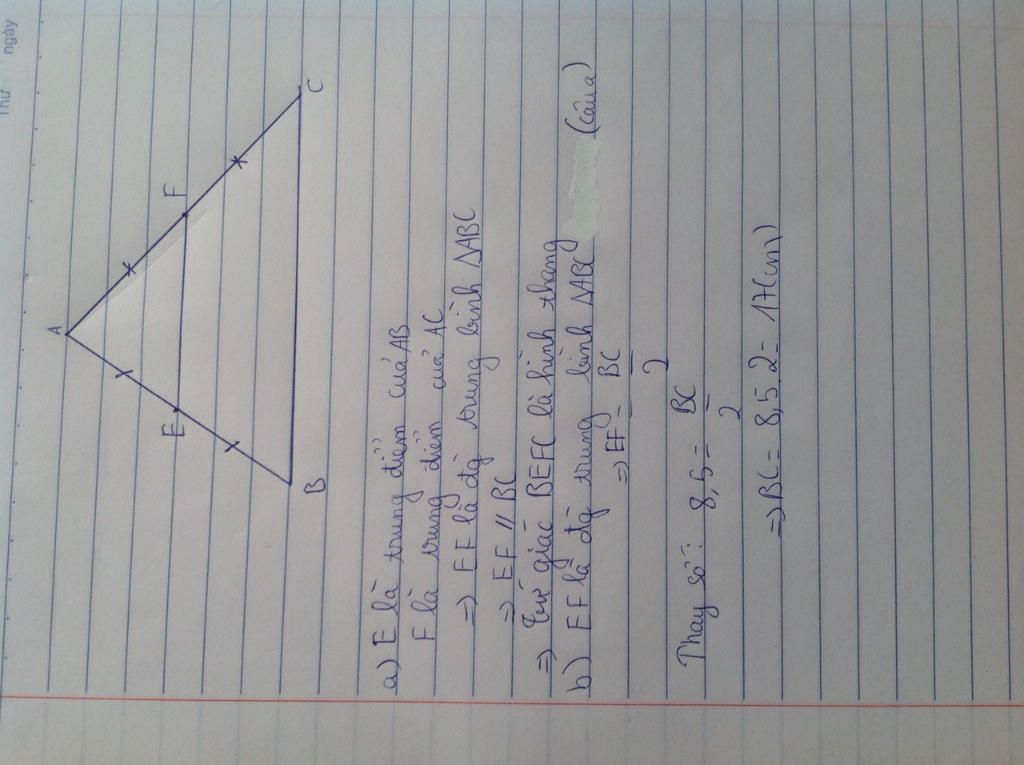 Thứ
ngày
A
E
F
B
C
a) E là trung điểm của AB
F là trung điểm của AC
=> EF là đg trung bình ΔABC
=> EF // BC
=> Tứ giác BEFC là hình thang
b) EF là đg trung bình ΔABC (câu a)
=> EF = BC/2
Thay số: 8,5 = BC/2
=> BC = 8,5.2 = 17(cm)